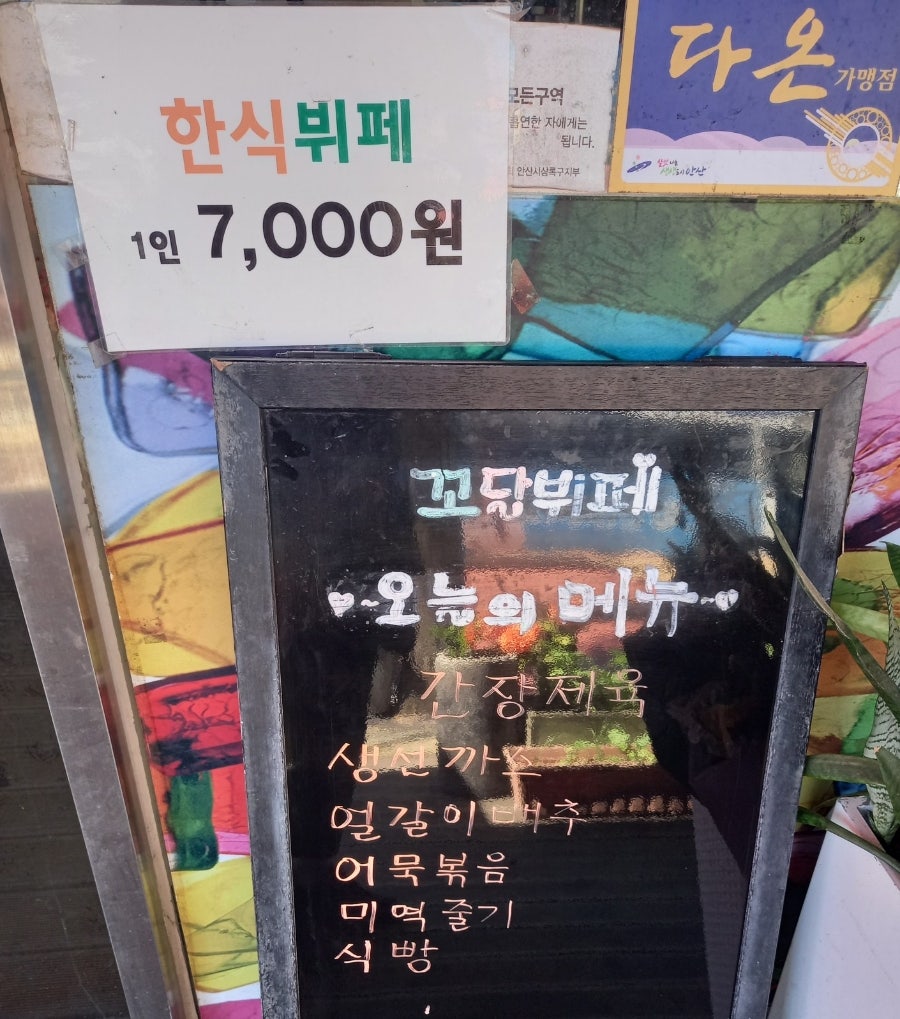 한식뷔페
1인 7,000원
모든구역
흡연한 자에게는
됩니다.
안산시상록구지부
다온
가맹점
꼬닭뷔페
오늘의 메뉴
간장제육
생선까스
얼갈이배추
어묵볶음
미역줄기
식빵